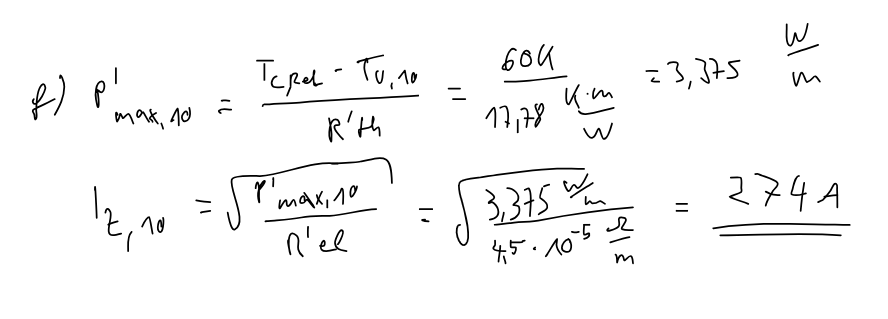 f) P'max,10 = (Tc,Bel - TU,10) / R'th = 60K / 17,78 K·m/W = 3,375 W/m
Iz,10 = √(P'max,10 / R'el) = √(3,375 W/m / 4,5 · 10⁻⁵ Ω/m) = 274 A